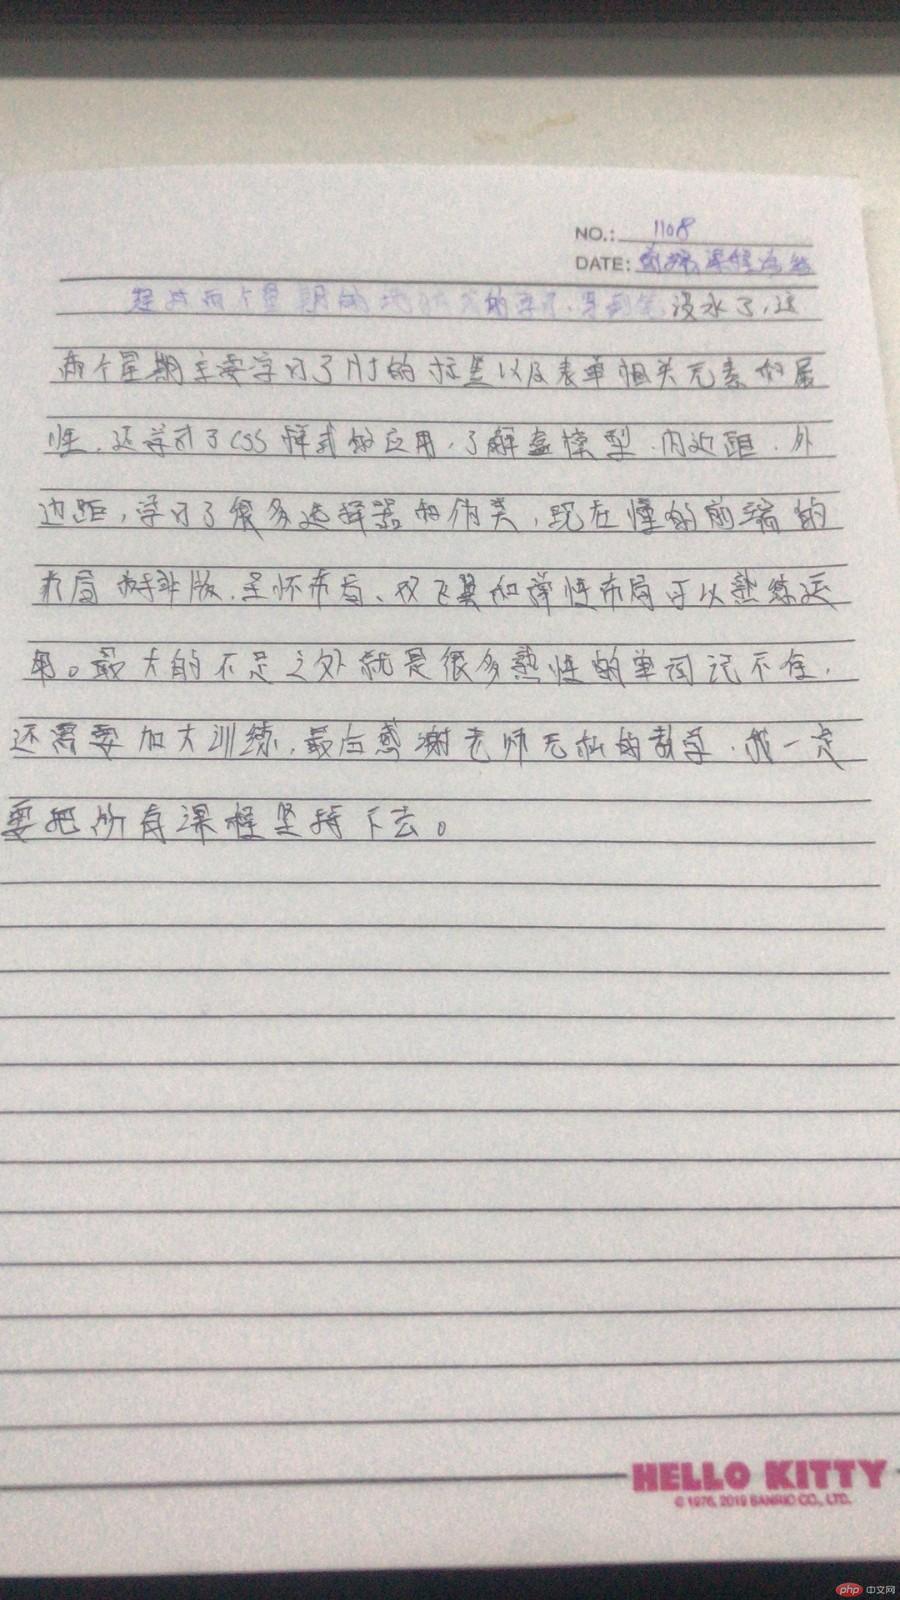 NO.: 1108
DATE: 前端课程总结
经过两个星期的 的学习,写到笔没水了,这
两个星期主要学习了 的标签以及表单相关元素的属
性,还学习了CSS样式的应用,了解盒模型、内边距、外
边距,学习了很多选择器和伪类,现在懂的前端的
布局 排版,圣怀布局、双飞翼和弹性布局可以熟练运
用。最大的不足之处就是很多熟性的单词记不住,
还需要加大训练,最后感谢老师无私的教学,我一定
要把所有课程坚持下去。
HELLO KITTY
© 1976, 2019 SANRIO CO., LTD.
php 中文网